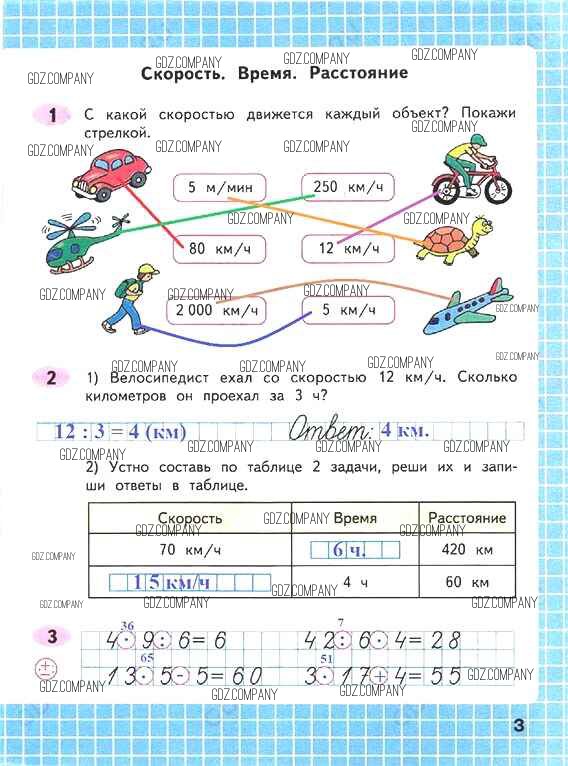 Скорость. Время. Расстояние
1 С какой скоростью движется каждый объект? Покажи
стрелкой.
5 м/мин 250 км/ч
80 км/ч 12 км/ч
2 000 км/ч 5 км/ч
2 1) Велосипедист ехал со скоростью 12 км/ч. Сколько
километров он проехал за 3 ч?
12 : 3 = 4 (км) Ответ: 4 км.
2) Устно составь по таблице 2 задачи, реши их и запи-
ши ответы в таблице.
Скорость Время Расстояние
70 км/ч 6 ч. 420 км
15 км/ч 4 ч 60 км
36 7
3 4 · 9 : 6 = 6 42 : 6 · 4 = 28
65 51
13 · 5 - 5 = 60 3 · 17 + 4 = 55
3
GDZ.COMPANY